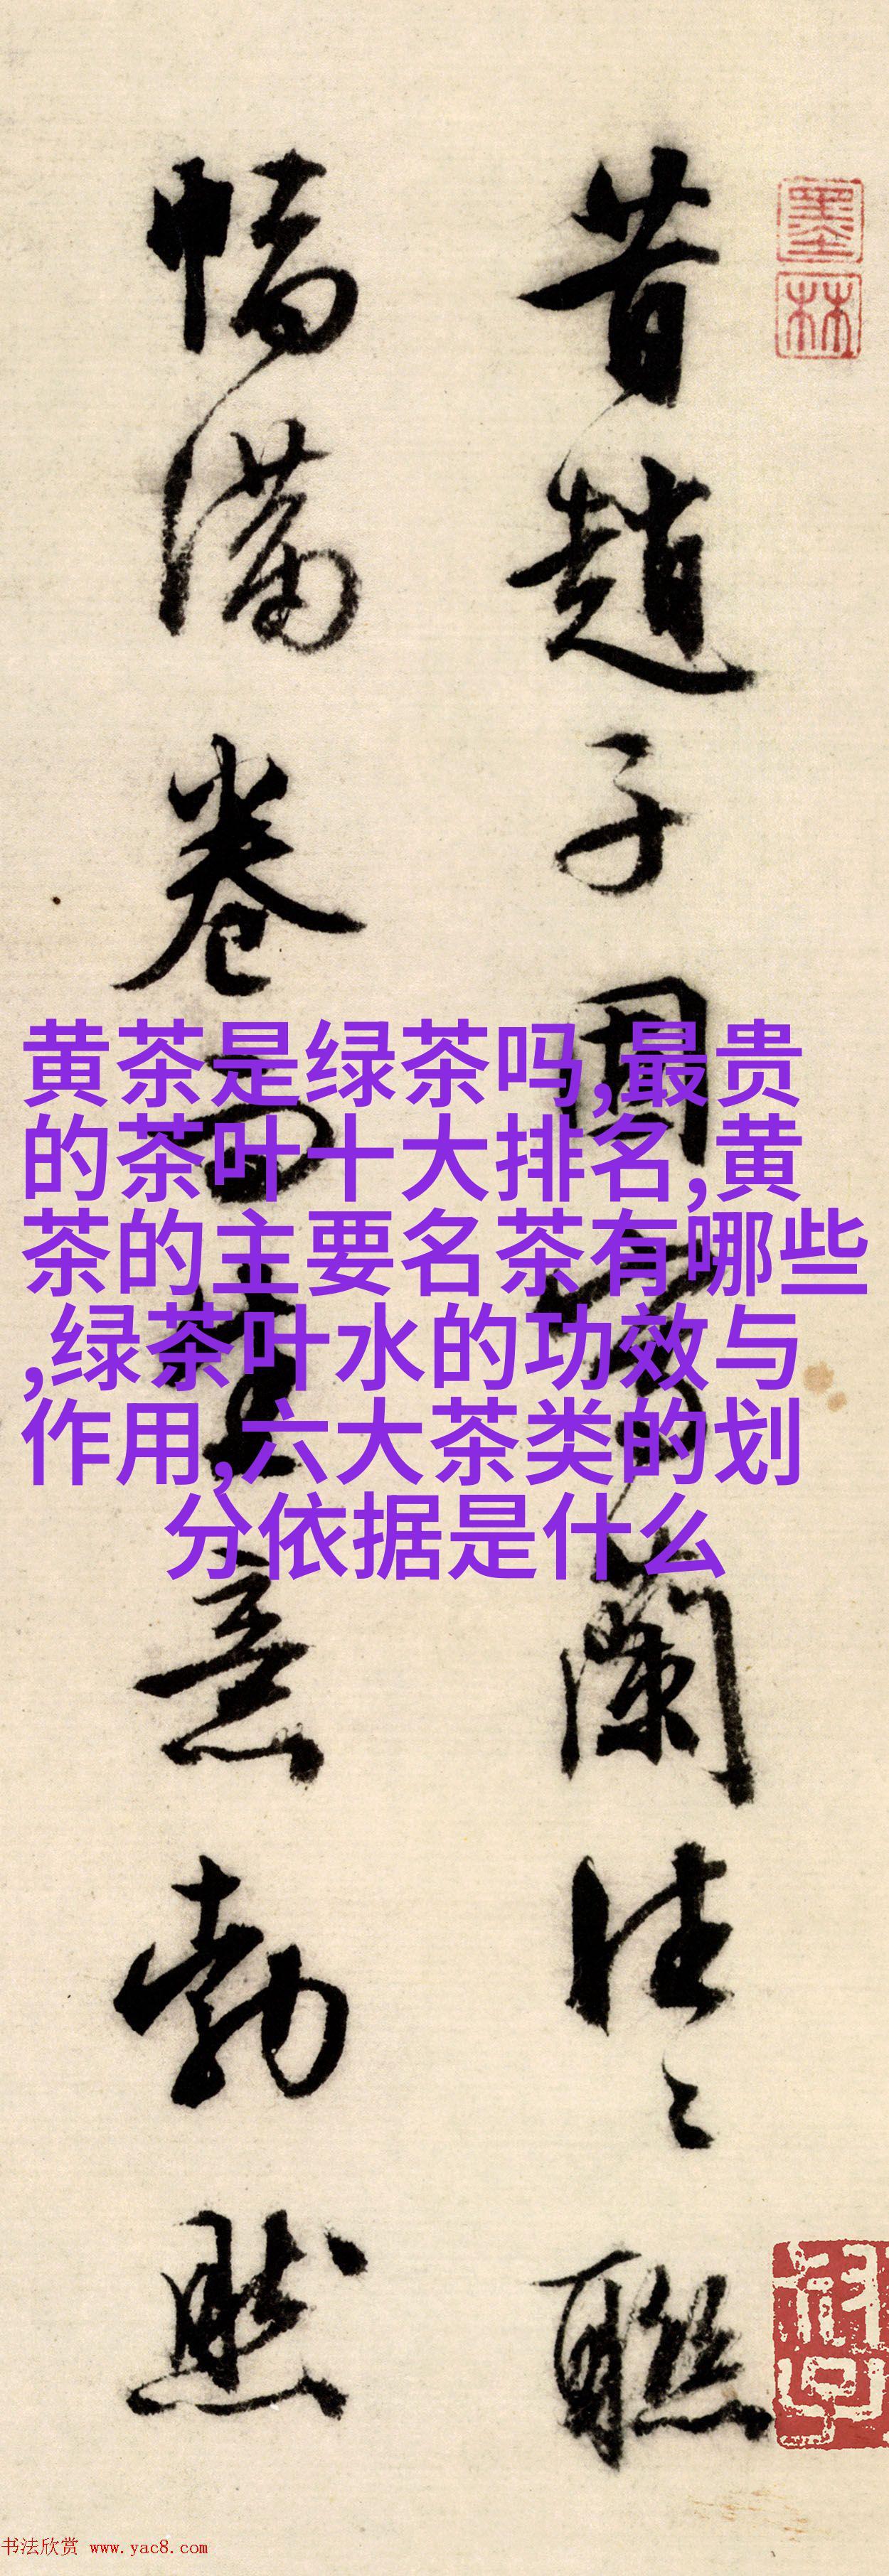 昔趙子固寫蘭往〻聯
幅滿卷而生意勃然
墨林
黄茶是绿茶吗,最贵
的茶叶十大排名,黄
茶的主要名茶有哪些
,绿茶叶水的功效与
作用,六大茶类的划
分依据是什么
书法欣赏 www.yac8.com